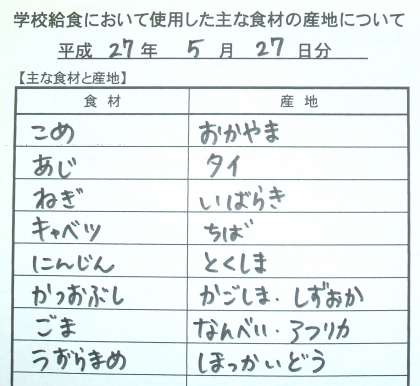 学校給食において使用した主な食材の産地について
平成 27 年 5 月 27 日分
【主な食材と産地】
食材 産地
こめ おかやま
あじ タイ
ねぎ いばらき
キャベツ ちば
にんじん とくしま
かつおぶし かごしま・しずおか
ごま なんべい・アフリカ
うずらまめ ほっかいどう